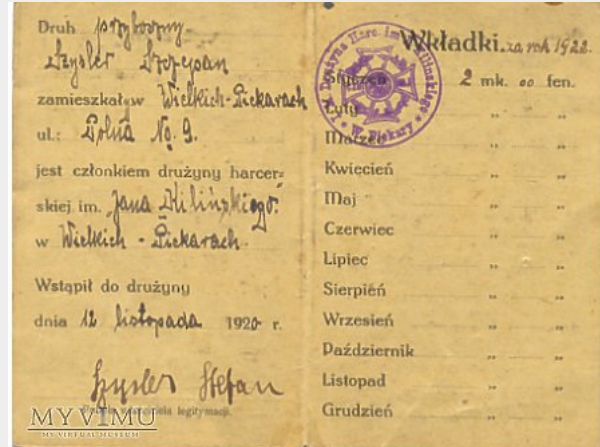 Druh przyboczny
Szysler Szczepan
zamieszkały w Wielkich-Piekarach
ul.: Polna No. 9.
jest członkiem drużyny harcer-
skiej im. "Jana Kilińskiego"
w Wielkich - Piekarach.
Wstąpił do drużyny
dnia 12 listopada 1920 r.
Szysler Stefan
legitymacji.
MYVIMU
MY VIRTUAL MUSEUM
Wkładki. za rok 1922.
Styczeń 2 mk. 00 fen.
Luty " "
Marzec " "
Kwiecień " "
Maj " "
Czerwiec " "
Lipiec " "
Sierpień " "
Wrzesień " "
Październik " "
Listopad " "
Grudzień " "
Drużyna Harc. im. Kilińskiego
W. Piekary